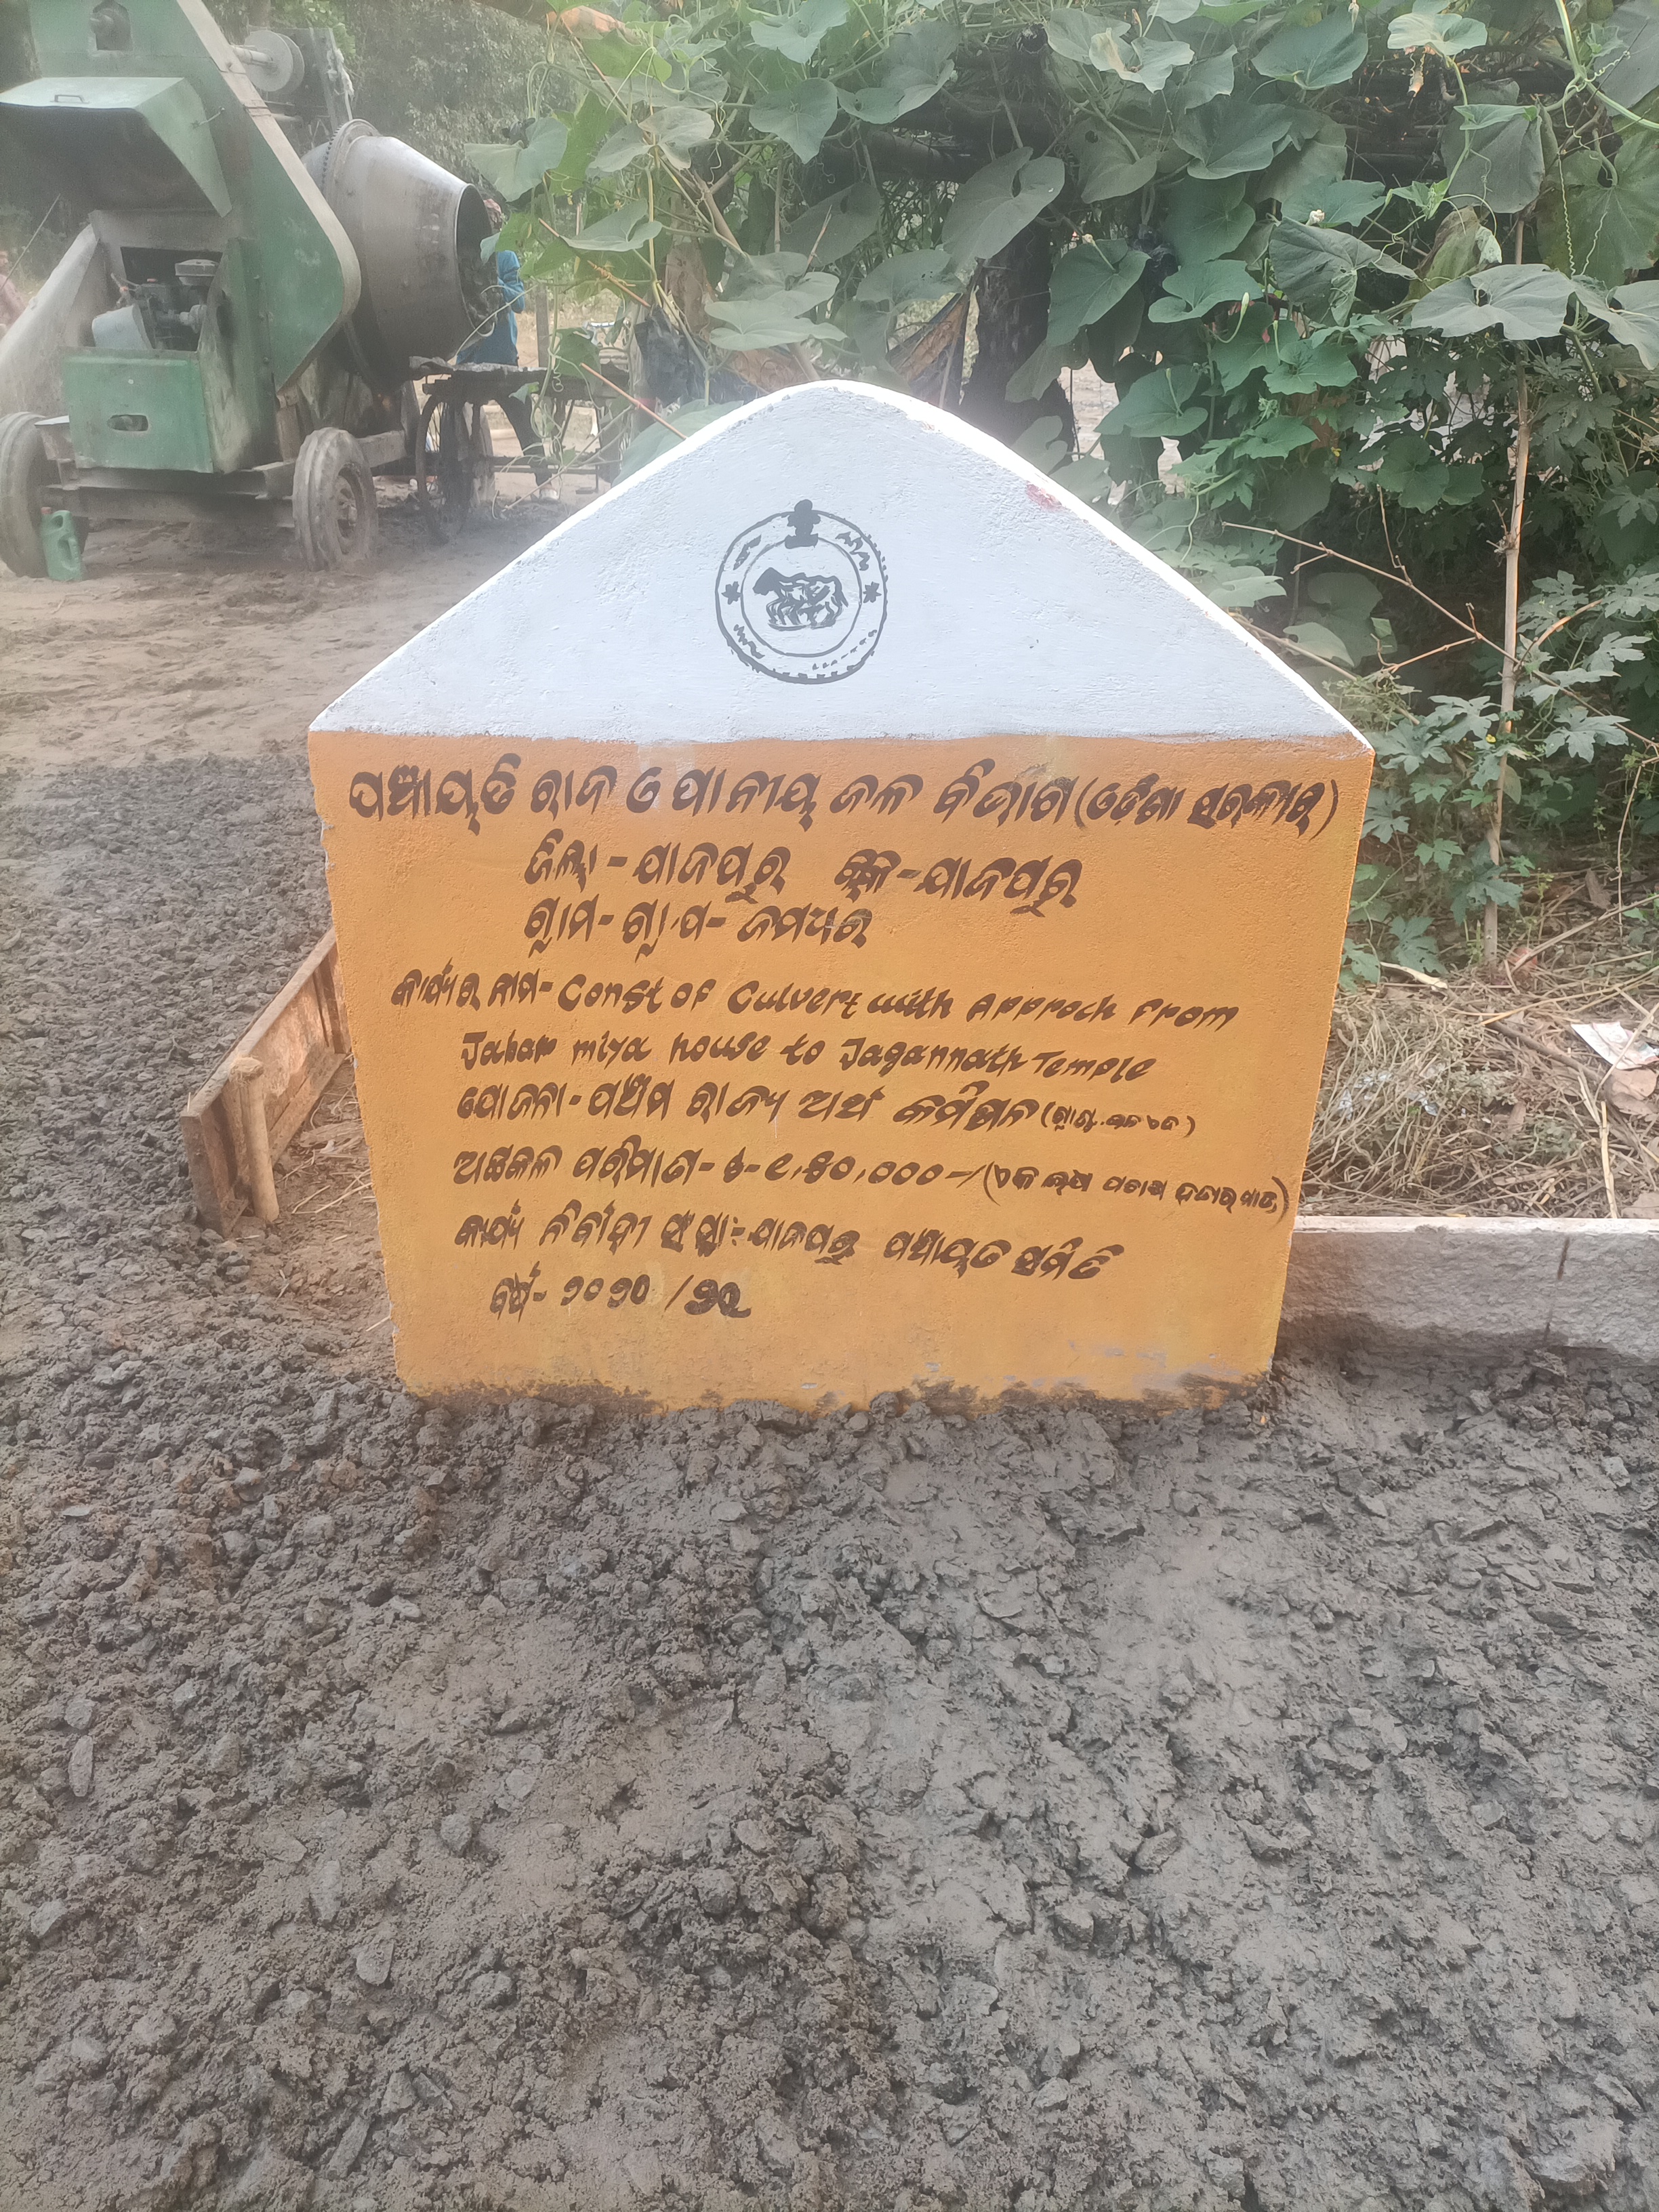 ପଞ୍ଚାୟତି ରାଜ ଓ ପାନୀୟ ଜଳ ବିଭାଗ (ଓଡ଼ିଶା ସରକାର)
ଜିଲ୍ଲା - ଯାଜପୁର ବ୍ଲକ - ଯାଜପୁର
ଗ୍ରାମ - ଗ୍ରା.ପ -
କାର୍ଯ୍ୟର ନାମ - Const of Culvert with Approch From
Jabar miya house to Jagannath Temple
ଯୋଜନା - ପଞ୍ଚମ ରାଜ୍ୟ ଅର୍ଥ କମିଶନ
ଅଟକଳ ପରିମାଣ - ଟ - ୧,୫୦,୦୦୦ -/ (ଏକ ଲକ୍ଷ ପଚାଶ ହଜାର ମାତ୍ର)
କାର୍ଯ୍ୟ ନିର୍ବାହୀ ସଂସ୍ଥା :- ଯାଜପୁର ପଞ୍ଚାୟତ ସମିତି
ବର୍ଷ - ୨୦୨୦ / ୨୧